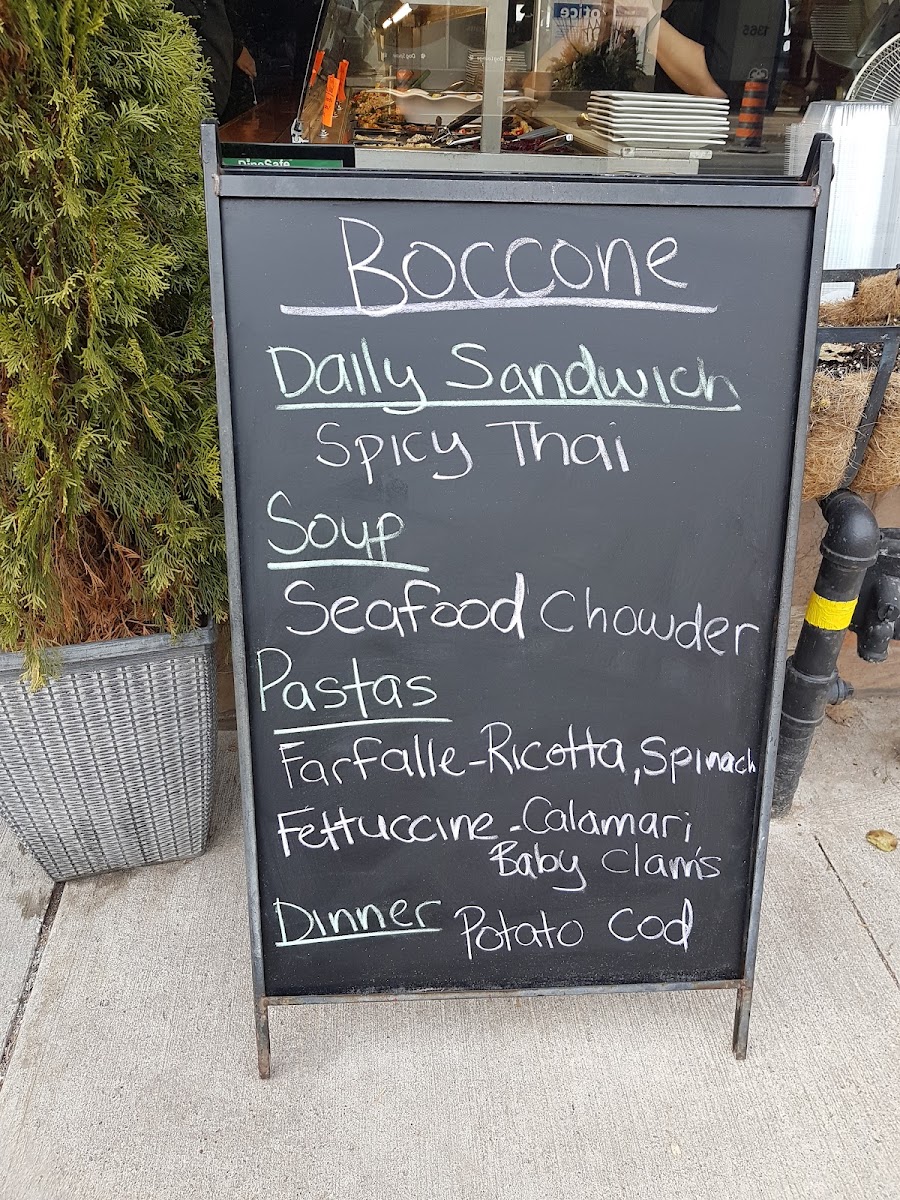 Boccone
Daily Sandwich
Spicy Thai
Soup
Seafood Chowder
Pastas
Farfalle-Ricotta, Spinach
Fettuccine-Calamari
Baby Clams
Dinner Potato Cod
DineSafe
1365